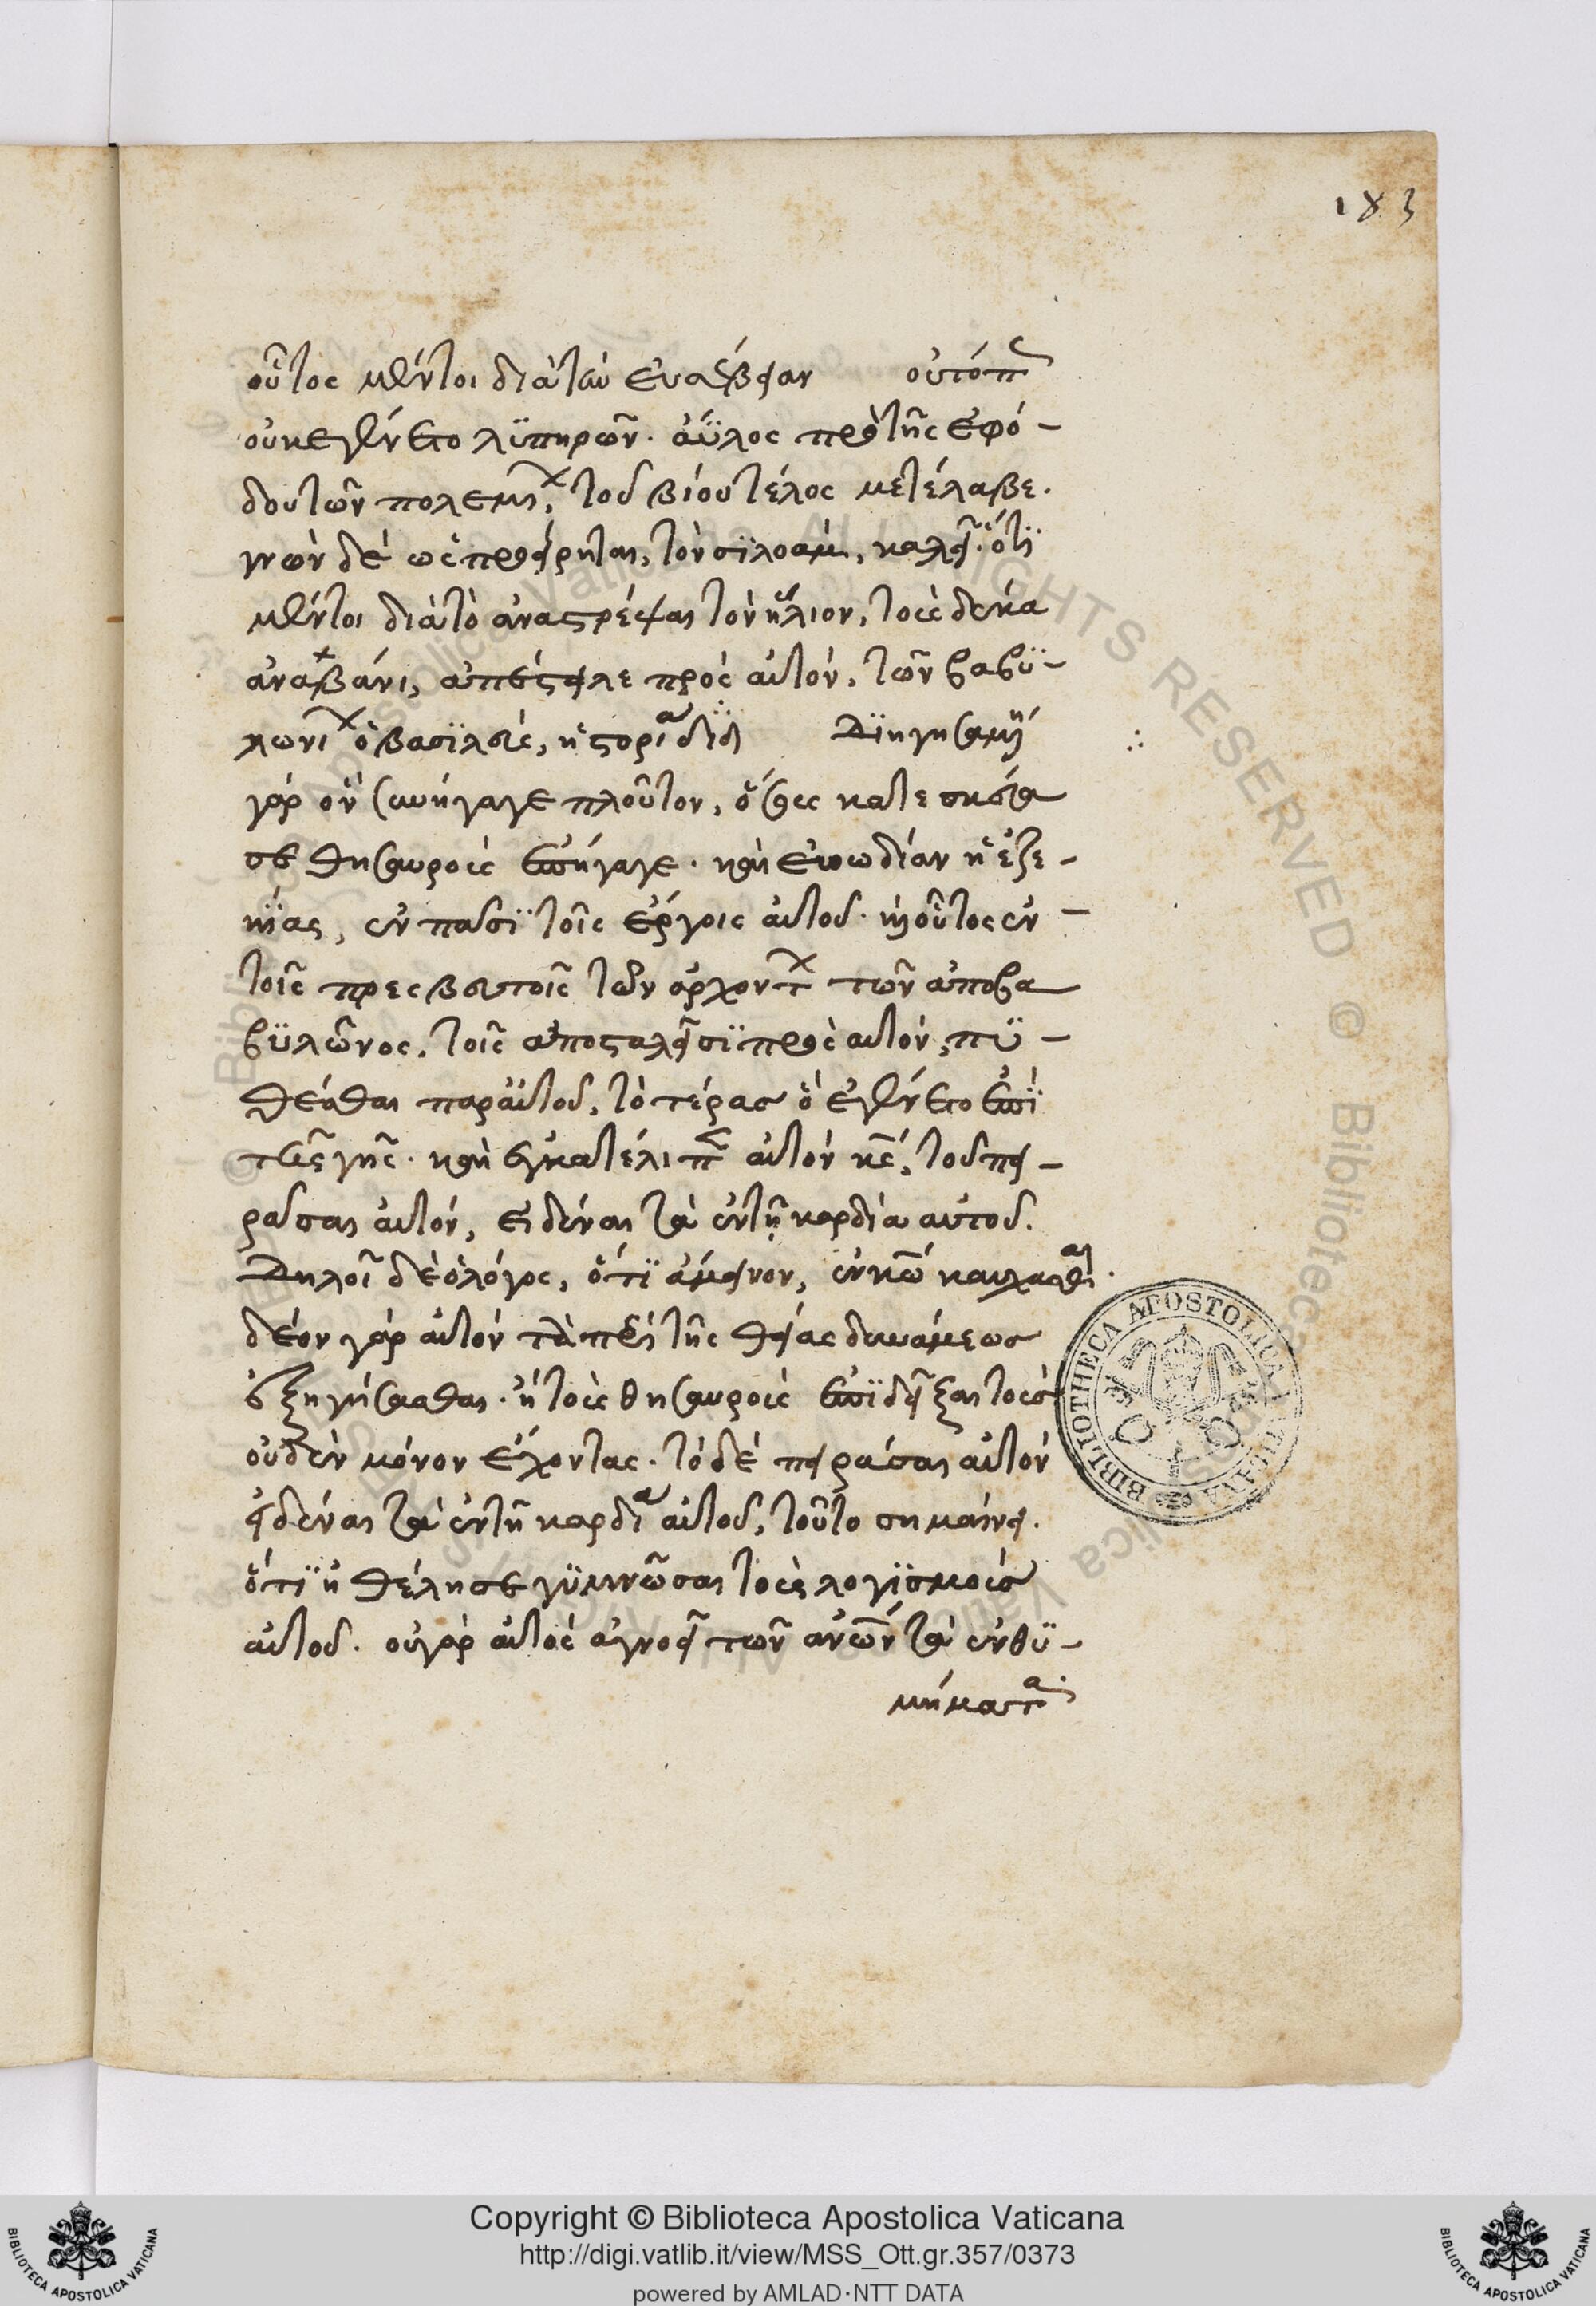 183
οὗτος μέντοι διὰ τὴν εὐσέβειαν οὐτόπ
οὐκ ἐγένετο λϋπηρῶν. ἀϋλος πρὸ τῆς ἐφό-
δου τῶν πολεμι, τοῦ βίου τέλος μετέλαβε.
γνὼν δὲ ὡς προείρηται, τὸν σϊλοὰμ, καλεῖ. ὅτϊ
μέντοι διὰ τὸ ἀναστρέψαι τὸν ἥλιον, τοὺς δέκα
ἀναβάνι, ἀπέστειλε πρὸς αὐτόν, τῶν βαβϋ-
λωνι ὁ βασϊλεὺς, ἡ στορία
γὰρ ὃν συνήγαγε πλοῦτον, ὅσους κατεσκεύα
σε θησαυροὺς ἐπήγαγε. καὶ εὐωδίαν ἡ ἐζε-
κϊας, ἐν πασϊ τοῖς ἔργοις αὐτοῦ. καὶ οὗτος ἐν
τοῖς πρεσβευτοῖς τῶν ἀρχόντ τῶν ἀπὸ βα
βϋλῶνος, τοῖς ἀποσταλεῖσϊ πρὸς αὐτόν, πϋ-
θέσθαι παρ' αὐτοῦ, τὸ τέρας ὃ ἐγένετο ἐπϊ
τῆς γῆς. καὶ ἐγκατέλιπ αὐτὸν κς, τοῦ πει-
ράσαι αὐτόν, εἰδέναι τὰ ἐν τῇ καρδία αὐτοῦ.
Δηλοῖ δὲ ὁ λόγος, ὅτϊ ἄμεινον, ἐν κω καυχᾶσθαι.
δέον γὰρ αὐτὸν τὰ περὶ τῆς θείας δυνάμεως
ἐξηγήσασθαι. ἢ τοὺς θησαυροὺς ἐπϊδεῖξαι τοὺς
οὐδὲν μόνον ἔχοντας. τὸ δὲ πειράσαι αὐτὸν
εἰδέναι τὰ ἐν τῇ καρδία αὐτοῦ, τοῦτο σημαίνει.
ὅτϊ ἠθέλησε γϋμνῶσαι τοὺς λογϊσμοὺς
αὐτοῦ. οὐ γὰρ αὐτὸς ἀγνοεῖ τῶν ἀνῶν τὰ ἐνθϋ-
μήματα
BIBLIOTHECA APOSTOLICA VATICANA
Copyright © Biblioteca Apostolica Vaticana
http://digi.vatlib.it/view/MSS_Ott.gr.357/0373
powered by AMLAD·NTT DATA
BIBLIOTECA APOSTOLICA VATICANA
BIBLIOTECA APOSTOLICA VATICANA